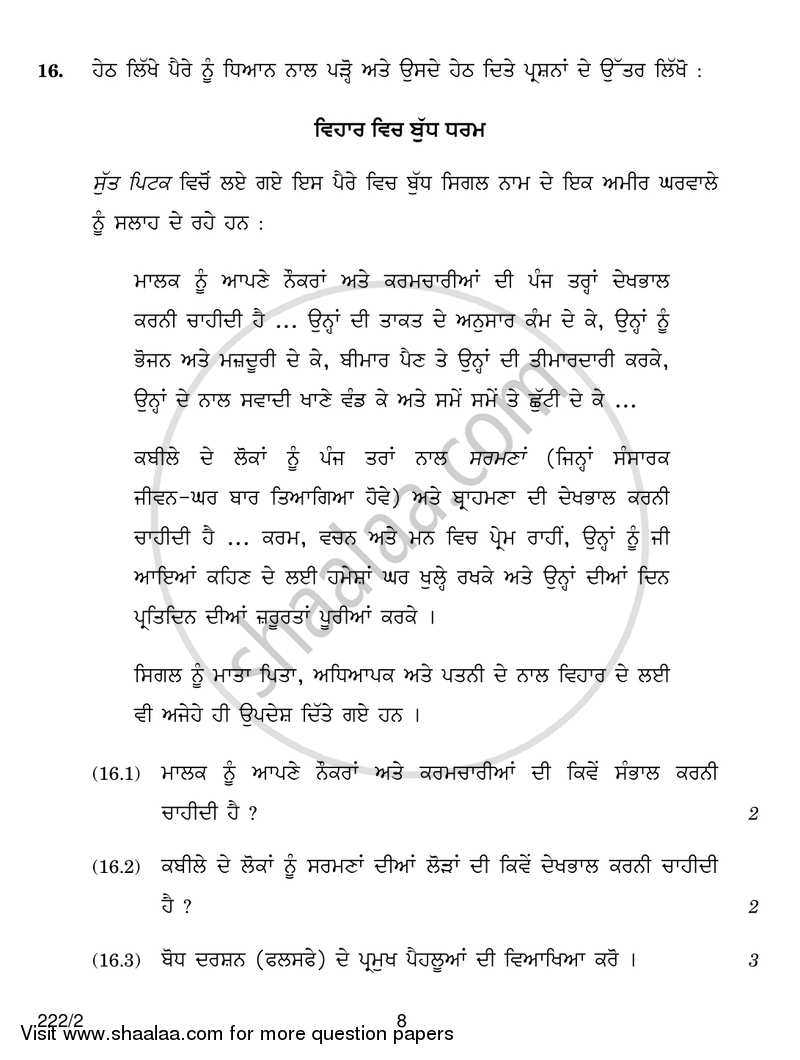 16. ਹੇਠ ਲਿੱਖੇ ਪੈਰੇ ਨੂੰ ਧਿਆਨ ਨਾਲ ਪੜ੍ਹੋ ਅਤੇ ਉਸਦੇ ਹੇਠ ਦਿਤੇ ਪ੍ਰਸ਼ਨਾਂ ਦੇ ਉੱਤਰ ਲਿੱਖੋ :
ਵਿਹਾਰ ਵਿਚ ਬੁੱਧ ਧਰਮ
ਸੁੱਤ ਪਿਟਕ ਵਿਚੋਂ ਲਏ ਗਏ ਇਸ ਪੈਰੇ ਵਿਚ ਬੁੱਧ ਸਿਗਲ ਨਾਮ ਦੇ ਇਕ ਅਮੀਰ ਘਰਵਾਲੇ
ਨੂੰ ਸਲਾਹ ਦੇ ਰਹੇ ਹਨ :
ਮਾਲਕ ਨੂੰ ਆਪਣੇ ਨੌਕਰਾਂ ਅਤੇ ਕਰਮਚਾਰੀਆਂ ਦੀ ਪੰਜ ਤਰ੍ਹਾਂ ਦੇਖਭਾਲ
ਕਰਨੀ ਚਾਹੀਦੀ ਹੈ ... ਉਨ੍ਹਾਂ ਦੀ ਤਾਕਤ ਦੇ ਅਨੁਸਾਰ ਕੰਮ ਦੇ ਕੇ, ਉਨ੍ਹਾਂ ਨੂੰ
ਭੋਜਨ ਅਤੇ ਮਜ਼ਦੂਰੀ ਦੇ ਕੇ, ਬੀਮਾਰ ਪੈਣ ਤੇ ਉਨ੍ਹਾਂ ਦੀ ਤੀਮਾਰਦਾਰੀ ਕਰਕੇ,
ਉਨ੍ਹਾਂ ਦੇ ਨਾਲ ਸਵਾਦੀ ਖਾਣੇ ਵੰਡ ਕੇ ਅਤੇ ਸਮੇਂ ਸਮੇਂ ਤੇ ਛੁੱਟੀ ਦੇ ਕੇ ...
ਕਬੀਲੇ ਦੇ ਲੋਕਾਂ ਨੂੰ ਪੰਜ ਤਰਾਂ ਨਾਲ ਸਰਮਣਾਂ (ਜਿਨ੍ਹਾਂ ਸੰਸਾਰਕ
ਜੀਵਨ-ਘਰ ਬਾਰ ਤਿਆਗਿਆ ਹੋਵੇ) ਅਤੇ ਬ੍ਰਾਹਮਣਾ ਦੀ ਦੇਖਭਾਲ ਕਰਨੀ
ਚਾਹੀਦੀ ਹੈ ... ਕਰਮ, ਵਚਨ ਅਤੇ ਮਨ ਵਿਚ ਪ੍ਰੇਮ ਰਾਹੀਂ, ਉਨ੍ਹਾਂ ਨੂੰ ਜੀ
ਆਇਆਂ ਕਹਿਣ ਦੇ ਲਈ ਹਮੇਸ਼ਾਂ ਘਰ ਖੁਲ੍ਹੇ ਰਖਕੇ ਅਤੇ ਉਨ੍ਹਾਂ ਦੀਆਂ ਦਿਨ
ਪ੍ਰਤਿਦਿਨ ਦੀਆਂ ਜ਼ਰੂਰਤਾਂ ਪੂਰੀਆਂ ਕਰਕੇ ।
ਸਿਗਲ ਨੂੰ ਮਾਤਾ ਪਿਤਾ, ਅਧਿਆਪਕ ਅਤੇ ਪਤਨੀ ਦੇ ਨਾਲ ਵਿਹਾਰ ਦੇ ਲਈ
ਵੀ ਅਜੇਹੇ ਹੀ ਉਪਦੇਸ਼ ਦਿੱਤੇ ਗਏ ਹਨ ।
(16.1) ਮਾਲਕ ਨੂੰ ਆਪਣੇ ਨੌਕਰਾਂ ਅਤੇ ਕਰਮਚਾਰੀਆਂ ਦੀ ਕਿਵੇਂ ਸੰਭਾਲ ਕਰਨੀ
ਚਾਹੀਦੀ ਹੈ ? 2
(16.2) ਕਬੀਲੇ ਦੇ ਲੋਕਾਂ ਨੂੰ ਸਰਮਣਾਂ ਦੀਆਂ ਲੋੜਾਂ ਦੀ ਕਿਵੇਂ ਦੇਖਭਾਲ ਕਰਨੀ ਚਾਹੀਦੀ
ਹੈ ? 2
(16.3) ਬੋਧ ਦਰਸ਼ਨ (ਫਲਸਫੇ) ਦੇ ਪ੍ਰਮੁਖ ਪੈਹਲੂਆਂ ਦੀ ਵਿਆਖਿਆ ਕਰੋ । 3
shaalaa.com
222/2 8
Visit www.shaalaa.com for more question papers